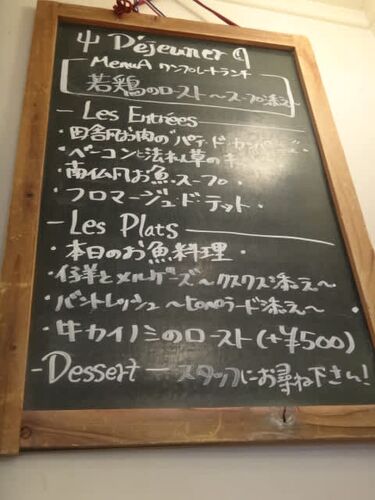 Déjeuner
MenuA ワンプレートランチ
若鶏のロースト〜スープ添え〜
- Les Entrées
・田舎風お肉の"パテ・ド・カンパーニュ"
・ベーコンと法れん草のキ
・南仏風お魚スープ・
・フロマージュ・ド・テット・
- Les Plats
・本日のお魚料理・
・仔羊とメルゲーズ〜クスクス添え〜
・バントレッシュ〜ピペラード添え〜
・牛カイノミのロースト(+¥500)
-Dessert — スタッフにお尋ね下さい!